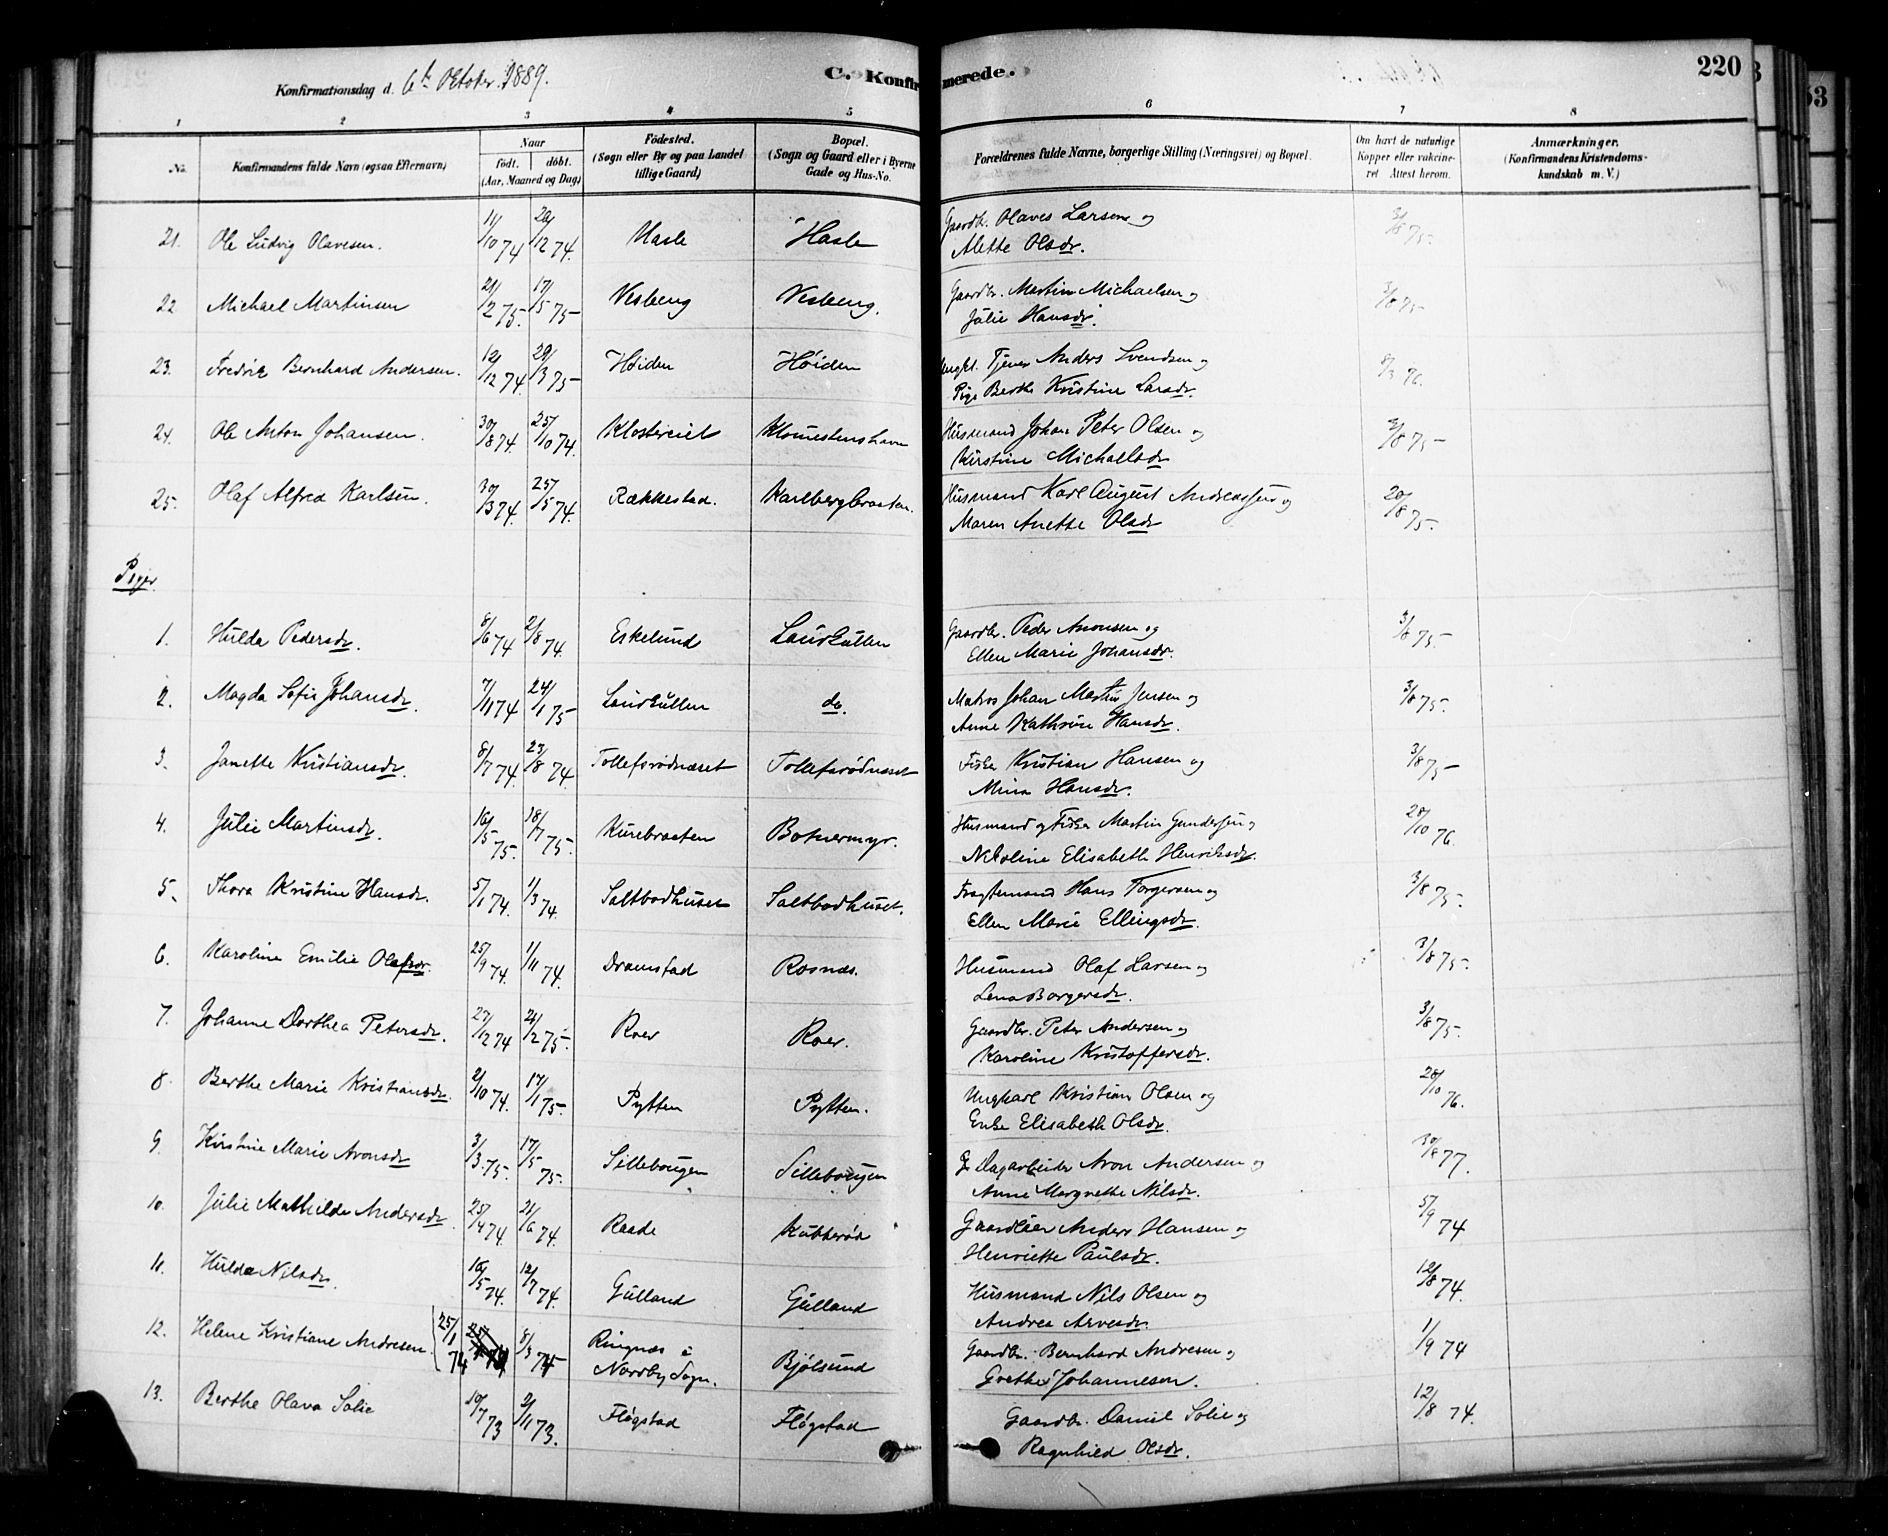 220
C. Konfirmerede.
Konfirmationsdag d. 6te Oktober 1889.
1 2 3 4 5 6 7 8
No. Konfirmandens fulde Navn (ogsaa Efternavn) Naar født. døbt. (Aar, Maaned og Dag) Fødested. (Sogn eller By og paa Landet tillige Gaard) Bopæl. (Sogn og Gaard eller i Byerne Gade og Hus-No. Forældrenes fulde Navne, borgerlige Stilling (Næringsvei) og Bopæl. Om havt de naturlige Kopper eller vakcineret Attest herom. Anmærkninger. (Konfirmandens Kristendomskundskab m. V.)
21. Ole Ludvig Olavesen. 11/10 74 20/12 74. Hasle Hasle Gaardbr. Olaves Larsen og 3/8 75.
Alette Olsdr.
22 Michael Martinsen 21/2 75. 17/5 75 Vesbeng Vesbeng. Gaardbr. Martin Michaelsen og 3/8 75
Julie Hansdr.
23. Fredrik Bernhard Andersen. 12/12 74. 29/3 75 Høiden Høiden Ungk. Tjener Anders Svendsen og 8/3 76.
Pige Berthe Kristine Larsdr.
24. Ole Anton Johansen. 30/8 74. 25/10 74. Klostereiet Husmand Johan Peter Olsen og 3/8 75
Kirstine Michaelsdr
25. Olaf Alfred Karlsen. 30/3 74. 25/5 74. Rækkestad. Karlbergbraaten. Husmand Karl August Andreassen og 20/8 75.
Maren Anette Olsdr
Piger
1. Hulda Pedersdr. 8/6 74 2/8 74. Eskelund Laurkullen Gaardbr. Peder Aronsen og 3/8 75.
Ellen Marie Johansdr.
2. Magda Sofie Johansdr. 7/11 74 24/1 75 Laurkullen do. Matros Johan Martin Jensen og 3/8 75.
Anne Kathrine Hansdr.
3. Janette Kristiansdr. 8/7 74. 23/8 74. Tollefsrødnæset Tollefsrødnæset Fisker Kristian Hansen og 3/8 75
Mina Hansdr.
4. Julie Martinsdr. 16/5 75. 18/7 75. Kurebraaten Botnermyr. Husmand og Fisker Martin Gundersen og 28/10 76.
Nikoline Elisabeth Henriksdr.
5. Thora Kristine Hansdr. 5/1 74. 1/3 74. Saltbodhuset Saltbodhuset. Fragtemand Hans Torgersen og 3/8 75.
Ellen Marie Ellingsdr.
6. Karoline Emilie Olafsdr. 25/9 74. 1/11 74. Dramstad Rosnæs. Husmand Olaf Larsen og 3/8 75.
Lena Borgersdr.
7. Johanne Dorthea Petersdr. 27/12 74 21/2 75. Roer Roer. Gaardbr. Peter Andersen og 3/8 75.
Karoline Kristoffersdr.
8. Berthe Marie Kristiansdr. 2/10 74. 17/1 75. Pytten Pytten. Ungkarl Kristian Olsen og 28/10 76.
Enke Elisabeth Olsdr.
9. Kirstine Marie Aronsdr 3/3 75. 17/5 75. Sillebougen Sillebougen Dagarbeider Aron Andersen og 30/8 77.
Anne Margrethe Nilsdr.
10. Julie Mathilde Andersdr. 25/4 74 21/6 74. Raade Kubberød Gaardbruger Anders Hansen og 5/9 74
Henriette Paulsdr.
11. Hulda Nilsdr. 16/5 74. 12/7 74. Gulland Gulland Husmand Nils Olsen og 12/8 74.
Andrea Arvesdr.
12. Helene Kristiane Andresen. 25/1 74 8/3 74 Ringnæs i Nordby Sogn. Bjølsund Gaardbr. Bernhard Andresen og 1/9 74
Grethe Johannesen.
13. Berthe Olava Solie 10/7 73 2/11 73. Fløgstad Fløgstad Gaardbr. Daniel Solie og 12/8 74.
Ragnhild Olsdr.